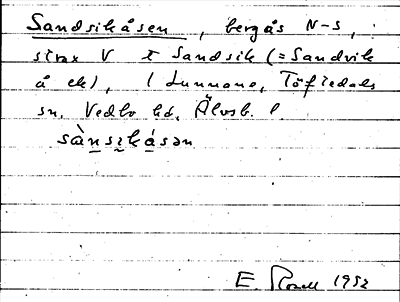 Sandsikåsen, bergås N-S,
strax V t Sandsik (= Sandvik
å ek), i Lunnane, Töftedals
sn, Vedbo hd, Älvsb. l.
sànsikásən
E. Rosell 1952